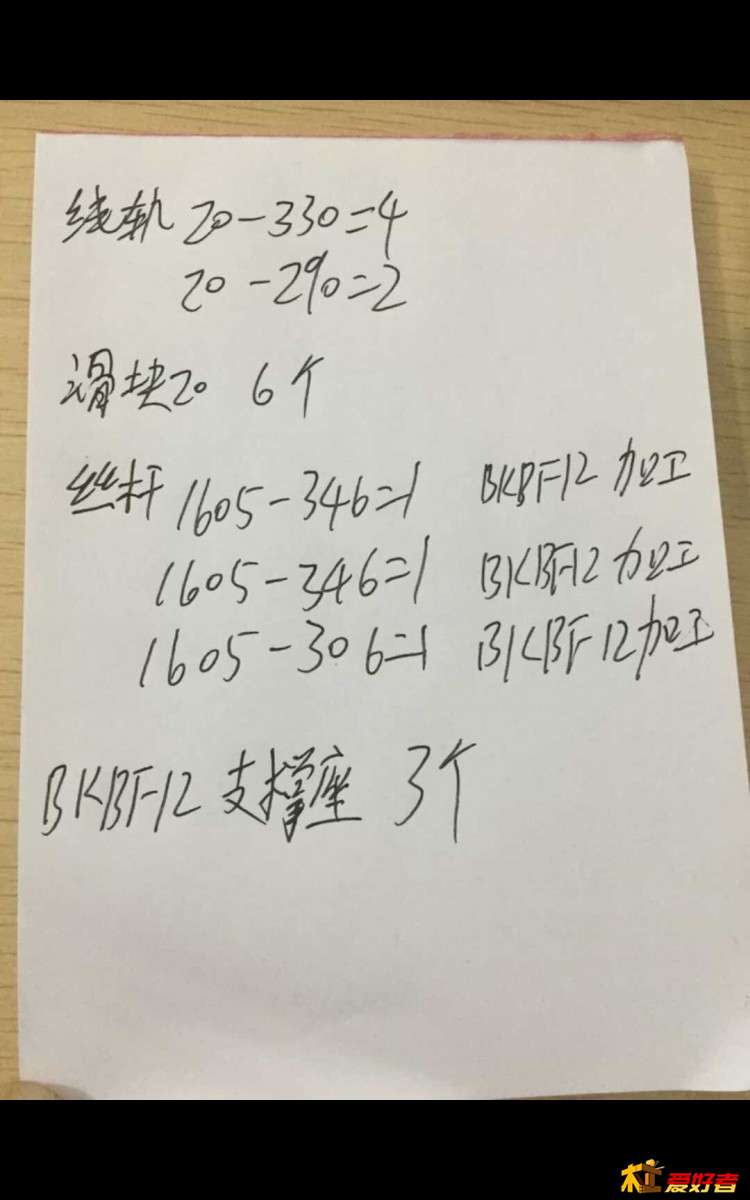 线轨 20-330=4
20-290=2
滑块20 6个
丝杆 1605-346=1 BKBF12 加工
1605-346=1 BKBF12 加工
1605-306=1 BKBF12加工
BKBF12 支撑座 3个
木工爱好者